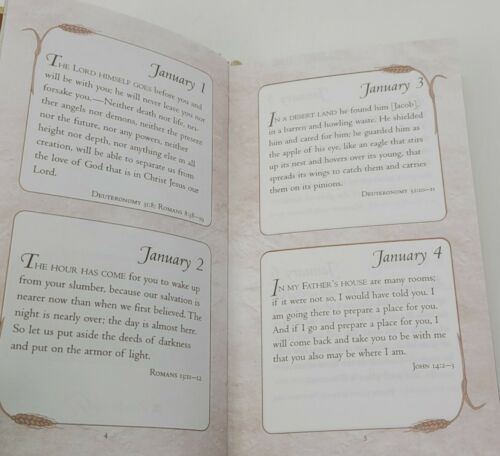 January 1
THE LORD HIMSELF GOES before you and
will be with you; he will never leave you nor
forsake you.—Neither death nor life, nei-
ther angels nor demons, neither the present
nor the future, nor any powers, neither
height nor depth, nor anything else in all
creation, will be able to separate us from
the love of God that is in Christ Jesus our
Lord.
DEUTERONOMY 31:8; ROMANS 8:38–39
January 2
THE HOUR HAS COME for you to wake up
from your slumber, because our salvation is
nearer now than when we first believed. The
night is nearly over; the day is almost here.
So let us put aside the deeds of darkness
and put on the armor of light.
ROMANS 13:11–12
4
January 3
IN A DESERT LAND he found him [Jacob],
in a barren and howling waste. He shielded
him and cared for him; he guarded him as
the apple of his eye, like an eagle that stirs
up its nest and hovers over its young, that
spreads its wings to catch them and carries
them on its pinions.
DEUTERONOMY 32:10–11
January 4
IN MY FATHER'S HOUSE are many rooms;
if it were not so, I would have told you. I
am going there to prepare a place for you.
And if I go and prepare a place for you, I
will come back and take you to be with me
that you also may be where I am.
JOHN 14:2–3
5